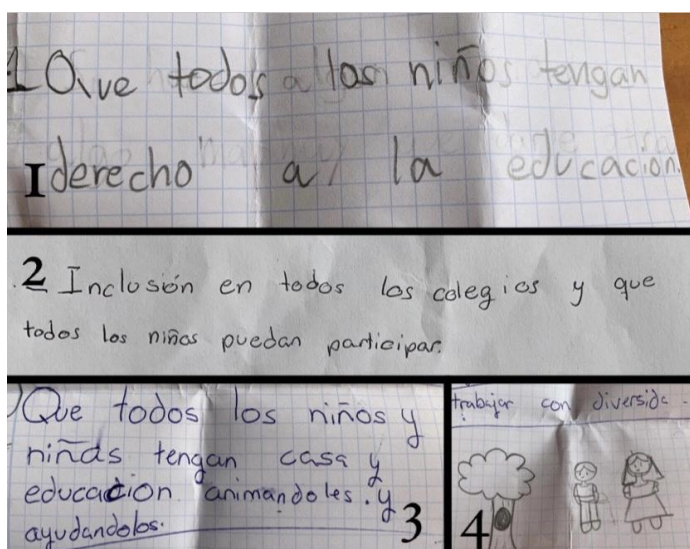 1 Que todos los niños tengan
I derecho a la educación.
2 Inclusión en todos los colegios y que
todos los niños puedan participar.
Que todos los niños y
niñas tengan casa y
educación animandoles. y
ayudandolos.
3
trabajar con diversida
4